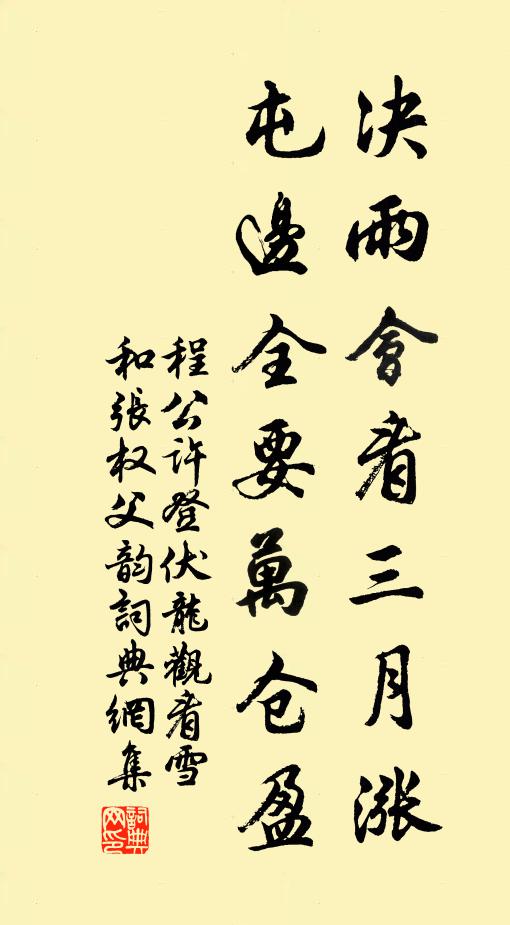 決雨會看三月漲
屯邊全要萬仓盈
程公许登伏龍觀看雪
和張权父韵詞典網集
詞典
网印